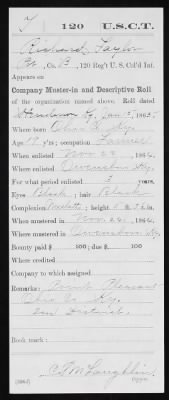 T 120 U.S.C.T.
Richard Taylor
Co. B, 120 Reg't U. S. Col'd Inf.
Appears on
Company Muster-in and Descriptive Roll
of the organization named above. Roll dated
Henderson Ky, Jan 5, 1865.
Where born Ohio Co. Ky.
Age 19 y'rs; occupation Farmer
When enlisted Nov. 22, 1864.
Where enlisted Owensboro, Ky.
For what period enlisted 3 years.
Eyes Black; hair Black
Complexion; height 5 ft. in.
When mustered in Nov. 22, 1864.
Where mustered in Owensboro, Ky.
Bounty paid $ 100; due $ 100
Where credited
Company to which assigned
Remarks: Pleasant
Ohio Co. Ky.
District.
Book mark:
C. P. McLaughlin
Copyist.